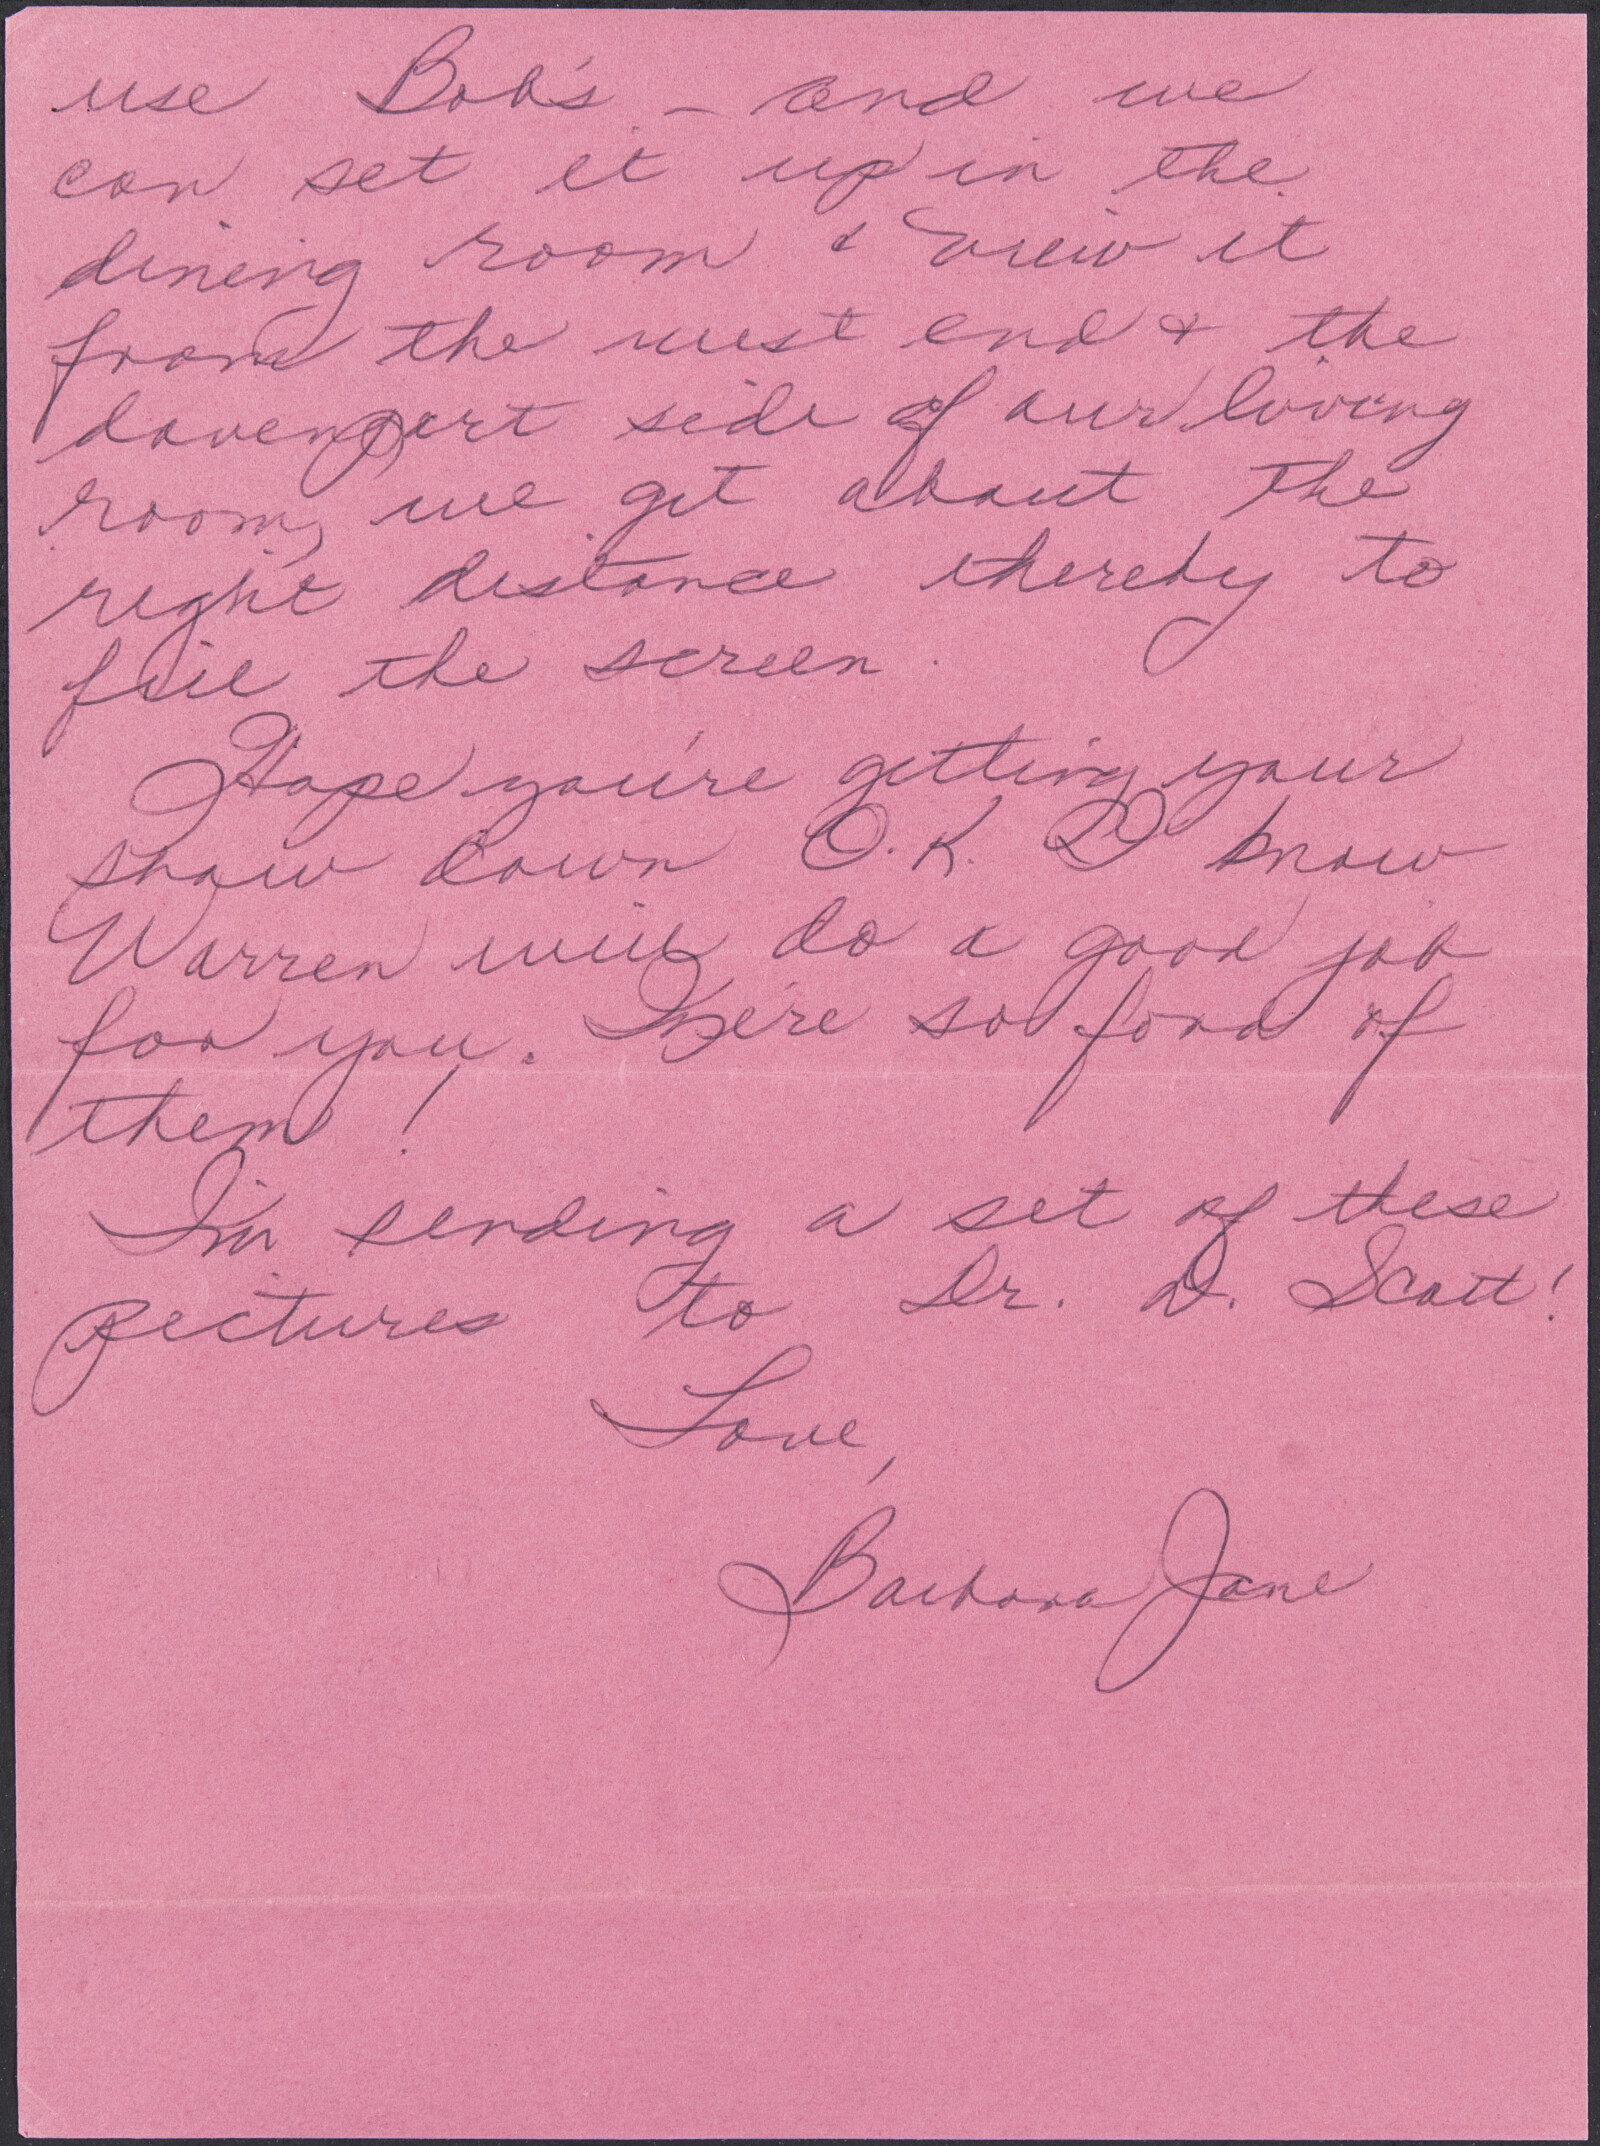 use Bob's - and we
can set it up in the
dining room & view it
from the west end & the
davenport side of our living
room, we get about the
right distance thereby to
fill the screen.
Hope you're getting your
show down O.K. I know
Warren will do a good job
for you. We're so fond of
them!
I'm sending a set of these
pictures to Dr. D. Scott!
Love,
Barbara Jane